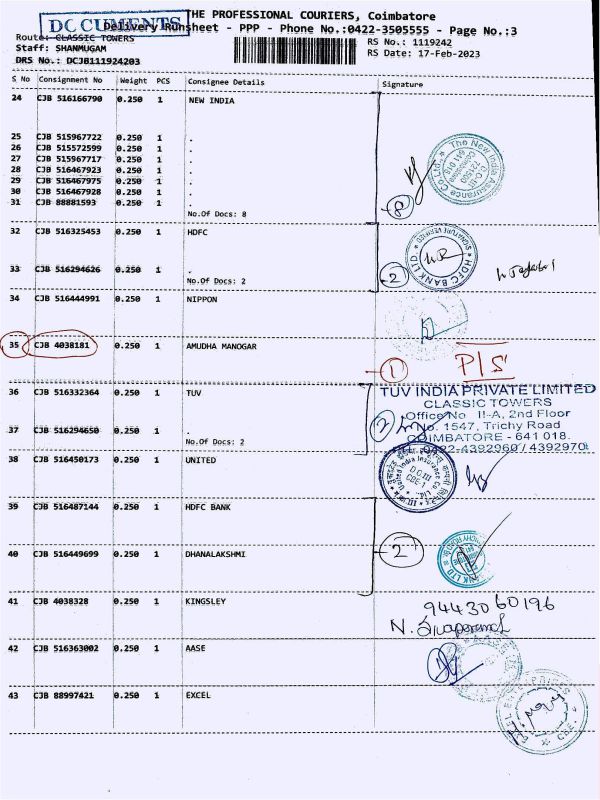 DC CUMENTS
THE PROFESSIONAL COURIERS, Coimbatore
Delivery Runsheet - PPP - Phone No.:0422-3505555 - Page No.:3
Route: CLASSIC TOWERS
RS No.: 1119242
Staff: SHANMUGAM
RS Date: 17-Feb-2023
DRS No.: DCJB111924203
S No Consignment No Weight PCS Consignee Details Signature
24 CJB 516166790 0.250 1 NEW INDIA
25 CJB 515967722 0.250 1 .
26 CJB 515572599 0.250 1 .
27 CJB 515967717 0.250 1 .
28 CJB 516467923 0.250 1 .
29 CJB 516467975 0.250 1 .
30 CJB 516467928 0.250 1 .
31 CJB 88881593 0.250 1 .
No.Of Docs: 8
8
The New India Assurance Co. Ltd.
32 CJB 516325453 0.250 1 HDFC
33 CJB 516294626 0.250 1 .
No.Of Docs: 2
2
HDFC BANK LTD.
SIGNATURE VERIFIED
34 CJB 516444991 0.250 1 NIPPON
35 CJB 4038181 0.250 1 AMUDHA MANOGAR
1
P/S
36 CJB 516332364 0.250 1 TUV
37 CJB 516294650 0.250 1 .
No.Of Docs: 2
2
TUV INDIA PRIVATE LIMITED
CLASSIC TOWERS
Office No II-A, 2nd Floor
No. 1547, Trichy Road
COIMBATORE - 641 018.
4392960 / 4392970
38 CJB 516450173 0.250 1 UNITED
United India Insurance Co. Ltd.
D.O III
CBE-1
39 CJB 516487144 0.250 1 HDFC BANK
40 CJB 516449699 0.250 1 DHANALAKSHMI
2
41 CJB 4038328 0.250 1 KINGSLEY
9443060196
42 CJB 516363002 0.250 1 AASE
43 CJB 88997421 0.250 1 EXCEL
CBE